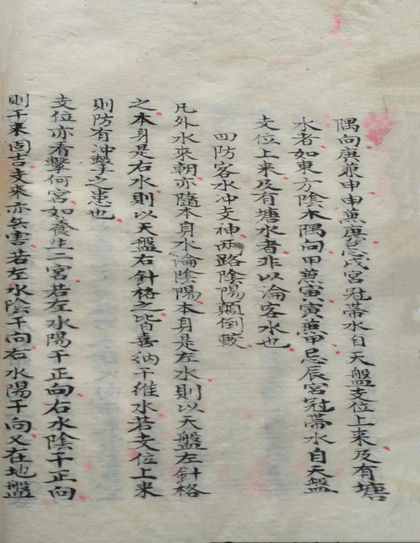 隅向庚兼申申兼庚忌戊宮冠帶水自天盤支位上來及有塘
水者如東方陰木隅向甲兼寅寅兼甲忌辰宮冠帶水自天盤
支位上來及有塘水者非以淪客水也
四防客水冲支神兩路陰陽顛倒載
凡外水來朝亦隨本身水淪陰陽本身是左水則以天盤左針格
之本身是右水則以天盤右針格之皆喜納干維水若支位上來
則防有冲擊之患也
支位亦看擊何宮如養生二宮若左水陽干正向右水陰干正向
則干來固吉支來亦無害若左水陰干向右水陽干向又在地盤